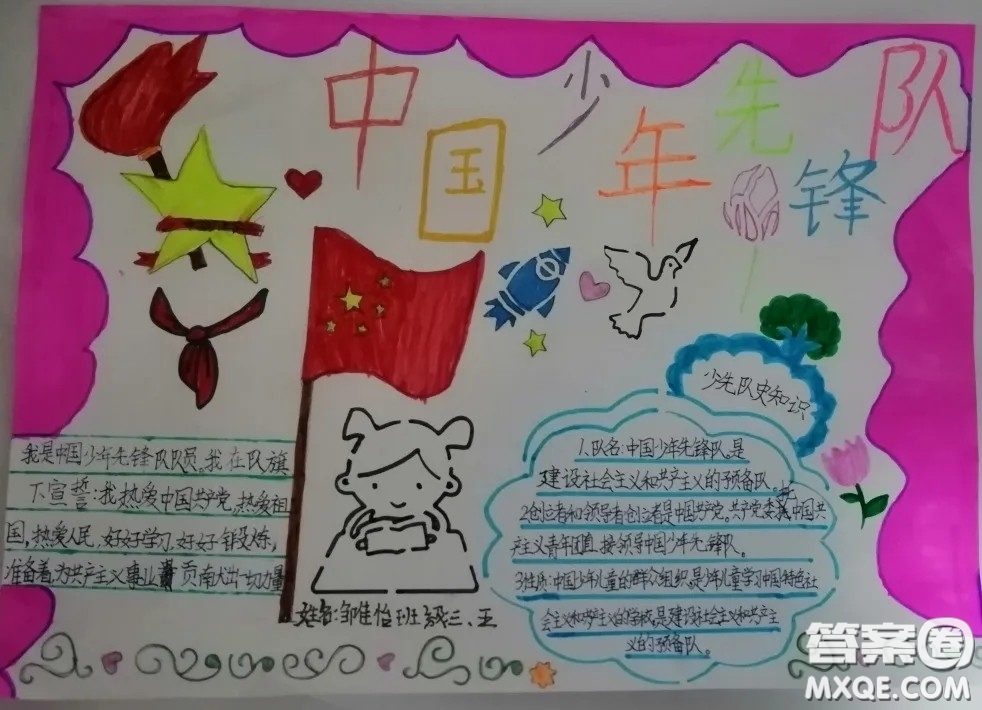 中国少年先锋队
我是中国少年先锋队队员。我在队旗
下宣誓:我热爱中国共产党,热爱祖
国,热爱人民,好好学习,好好锻炼,
准备着,为共产主义事业贡南犬出一切力量
姓名:邹佳怡 班级三、五
少先队史知识
1.队名:中国少年先锋队。是
建设社会主义和共产主义的预备队
2.创立者和领导者创立者是中国共产党。共产党委托中国共
产主义青年团直接领导中国少年先锋队。
3.性质:中国少年儿童的群众组织,是少年儿童学习中国特色社
会主义和共产主义的学校,是建设社会主义和共产主
义的预备队。
答案圈
MXQE.COM